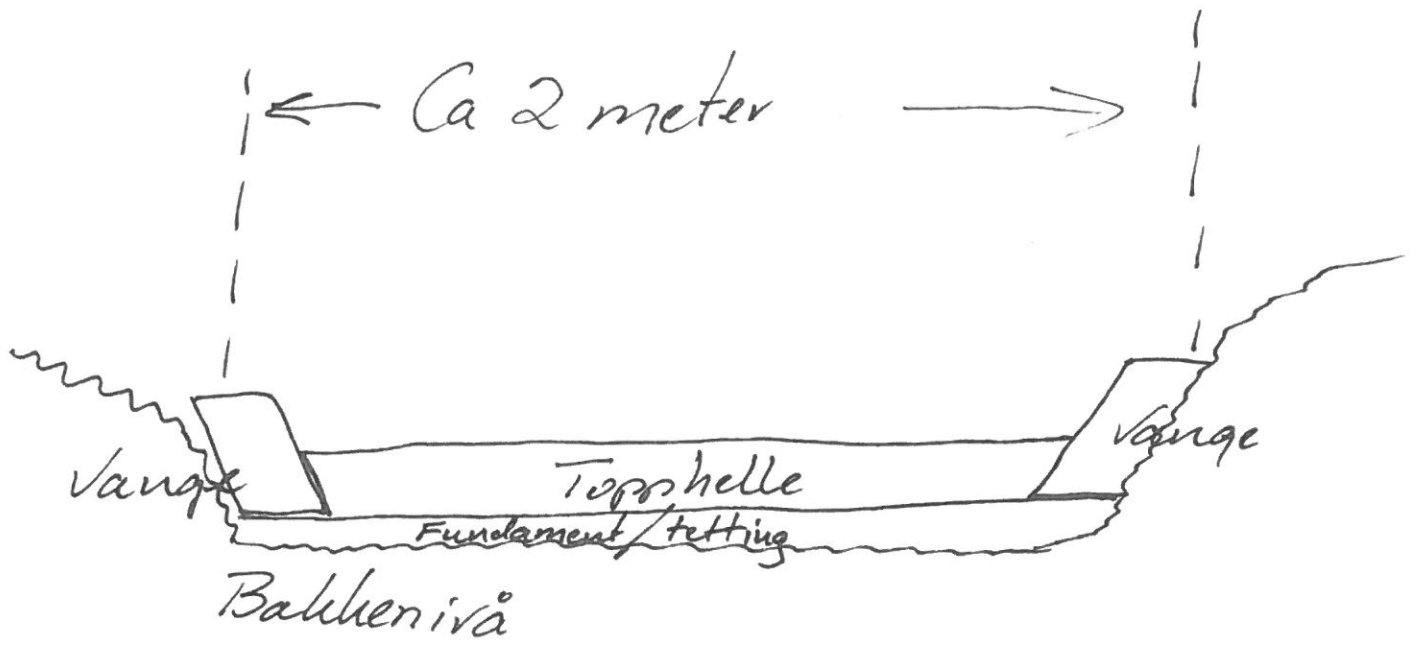 Ca 2 meter
Vange
Vange
Topphelle
Fundament/tetting
Bakkenivå